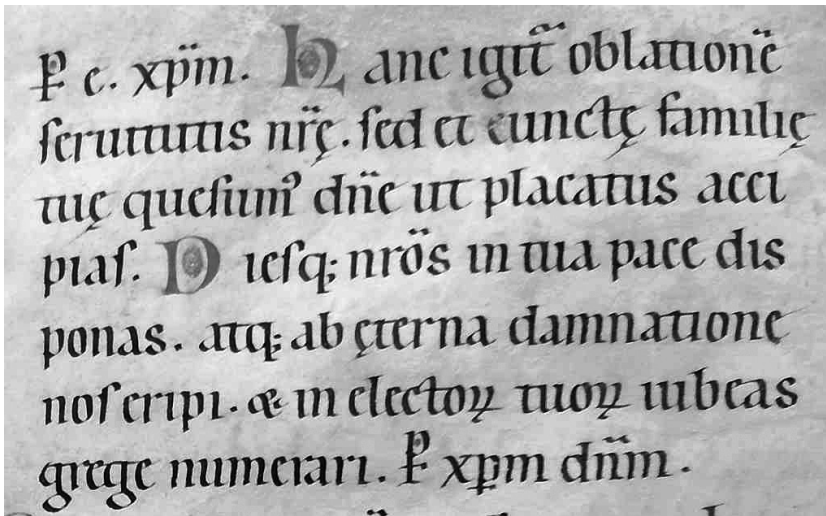 ꝑ c. xp̄m. Hanc igit̄ oblationē
ſeruitutis nr̄ę. ſed et cunctę familię
tuę queſumꝰ dn̄e ut placatus acci
piaſ. Dieſq; nr̄os in tua pace dis
ponas. atq; ab ęterna damnatione
noſ eripi. & in electoꝝ tuoꝝ iubeas
grege numerari. ꝑ xp̄m dn̄m.